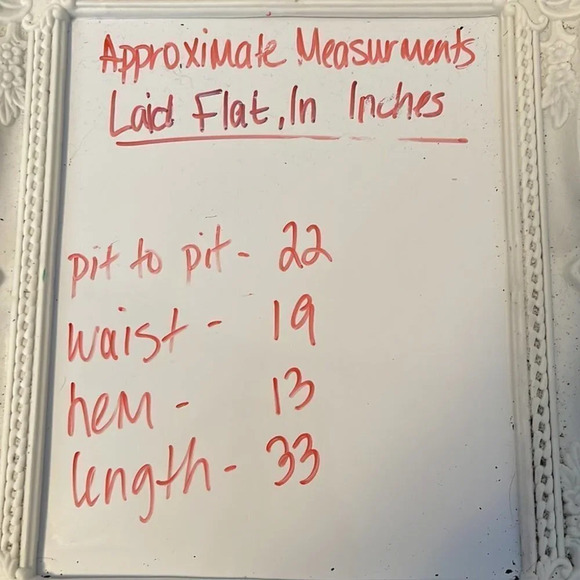 Approximate Measurments
Laid Flat, In Inches
pit to pit - 22
waist - 19
hem - 13
length - 33